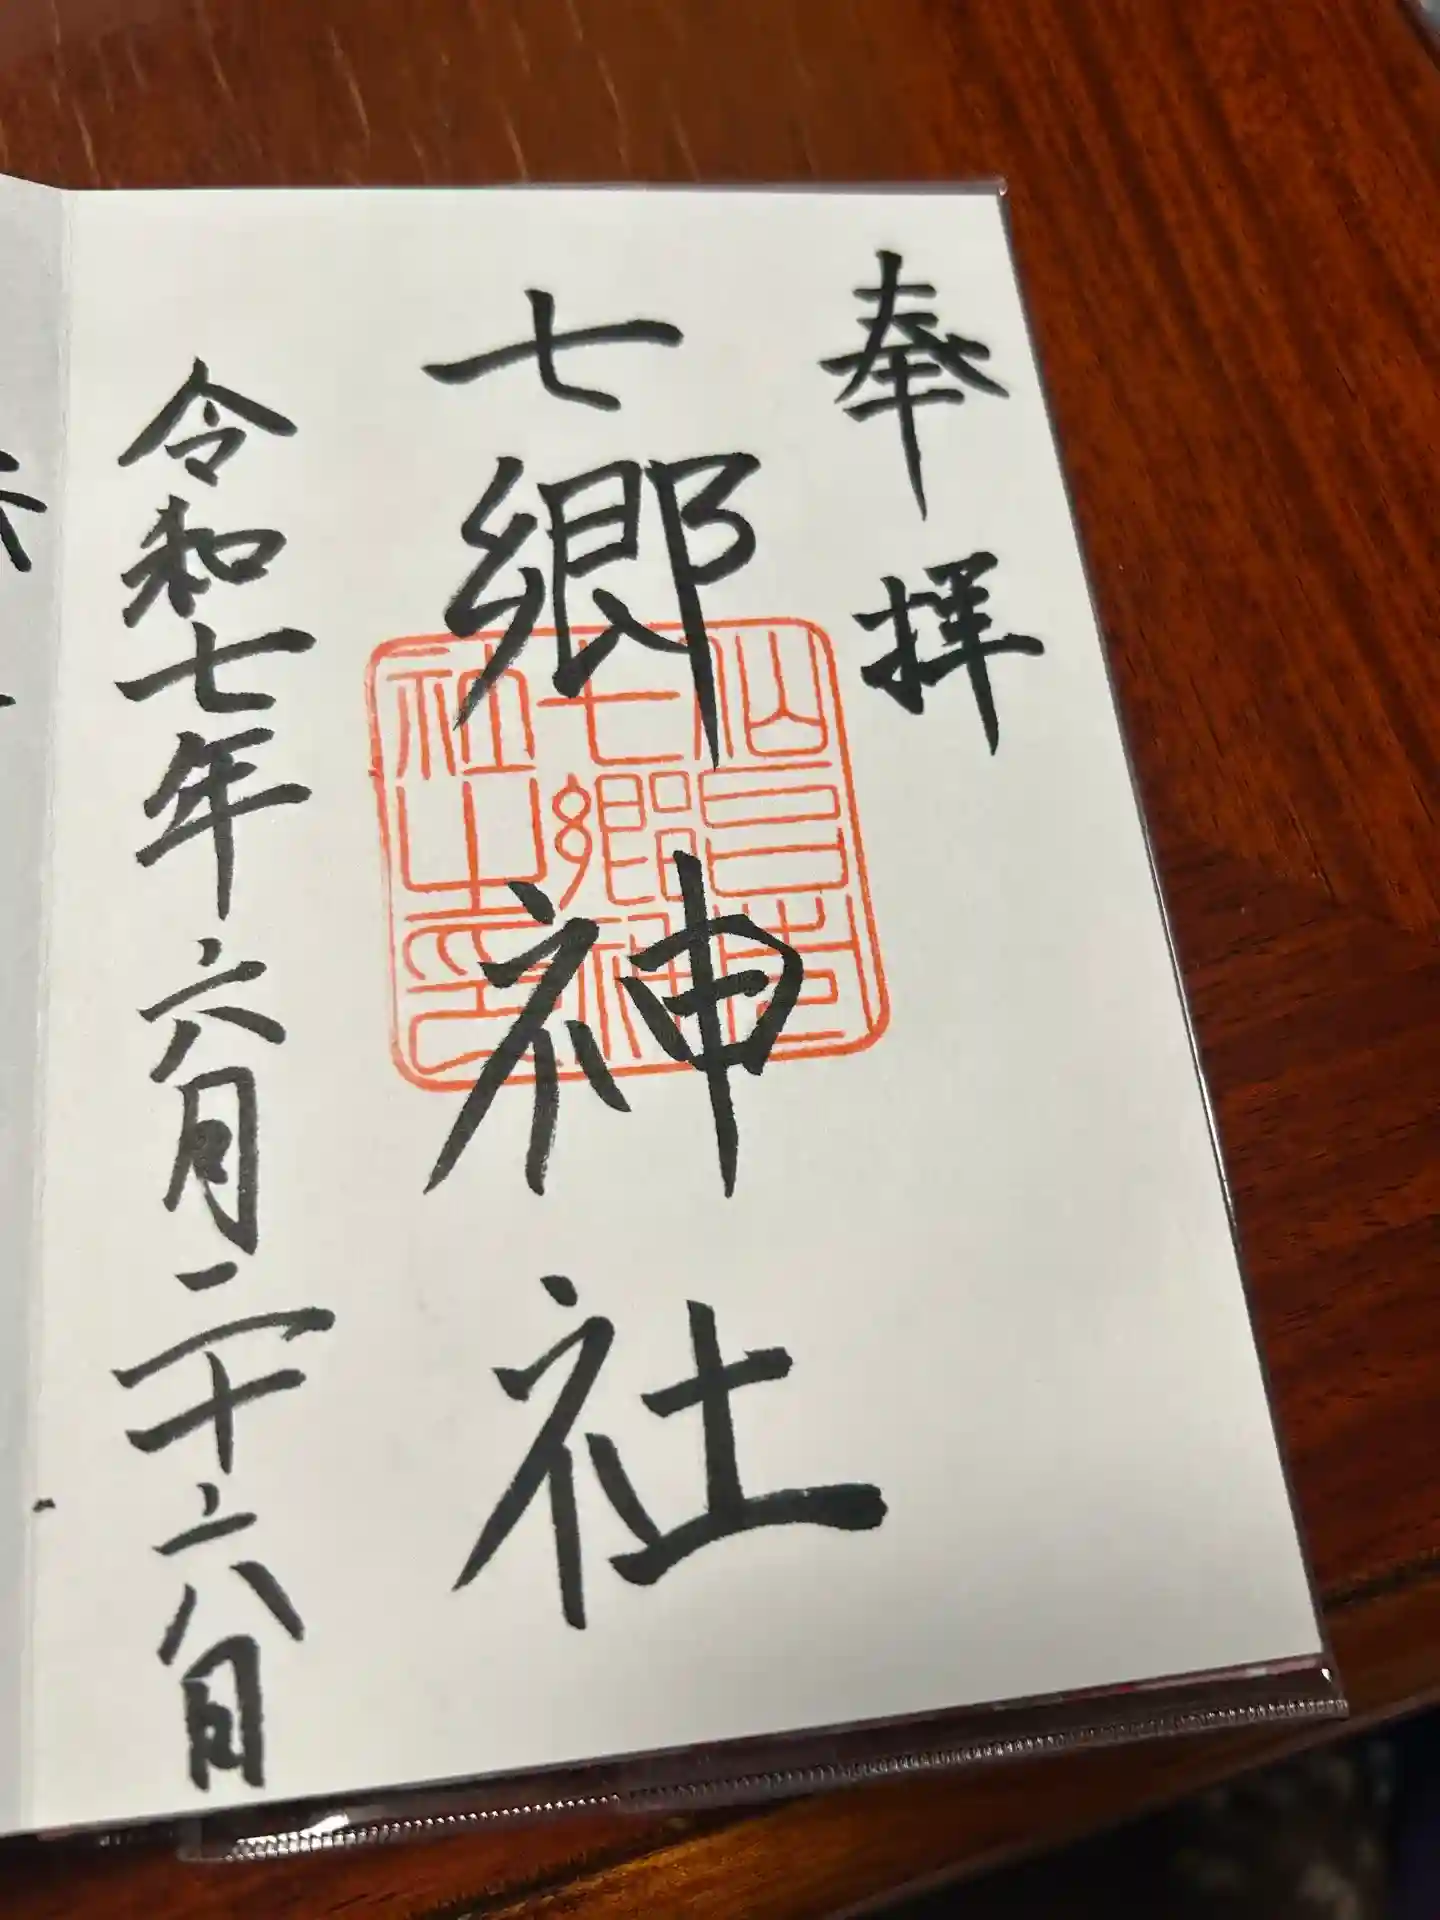 奉拝
七郷神社
令和七年六月二十六日
七郷神
社之印